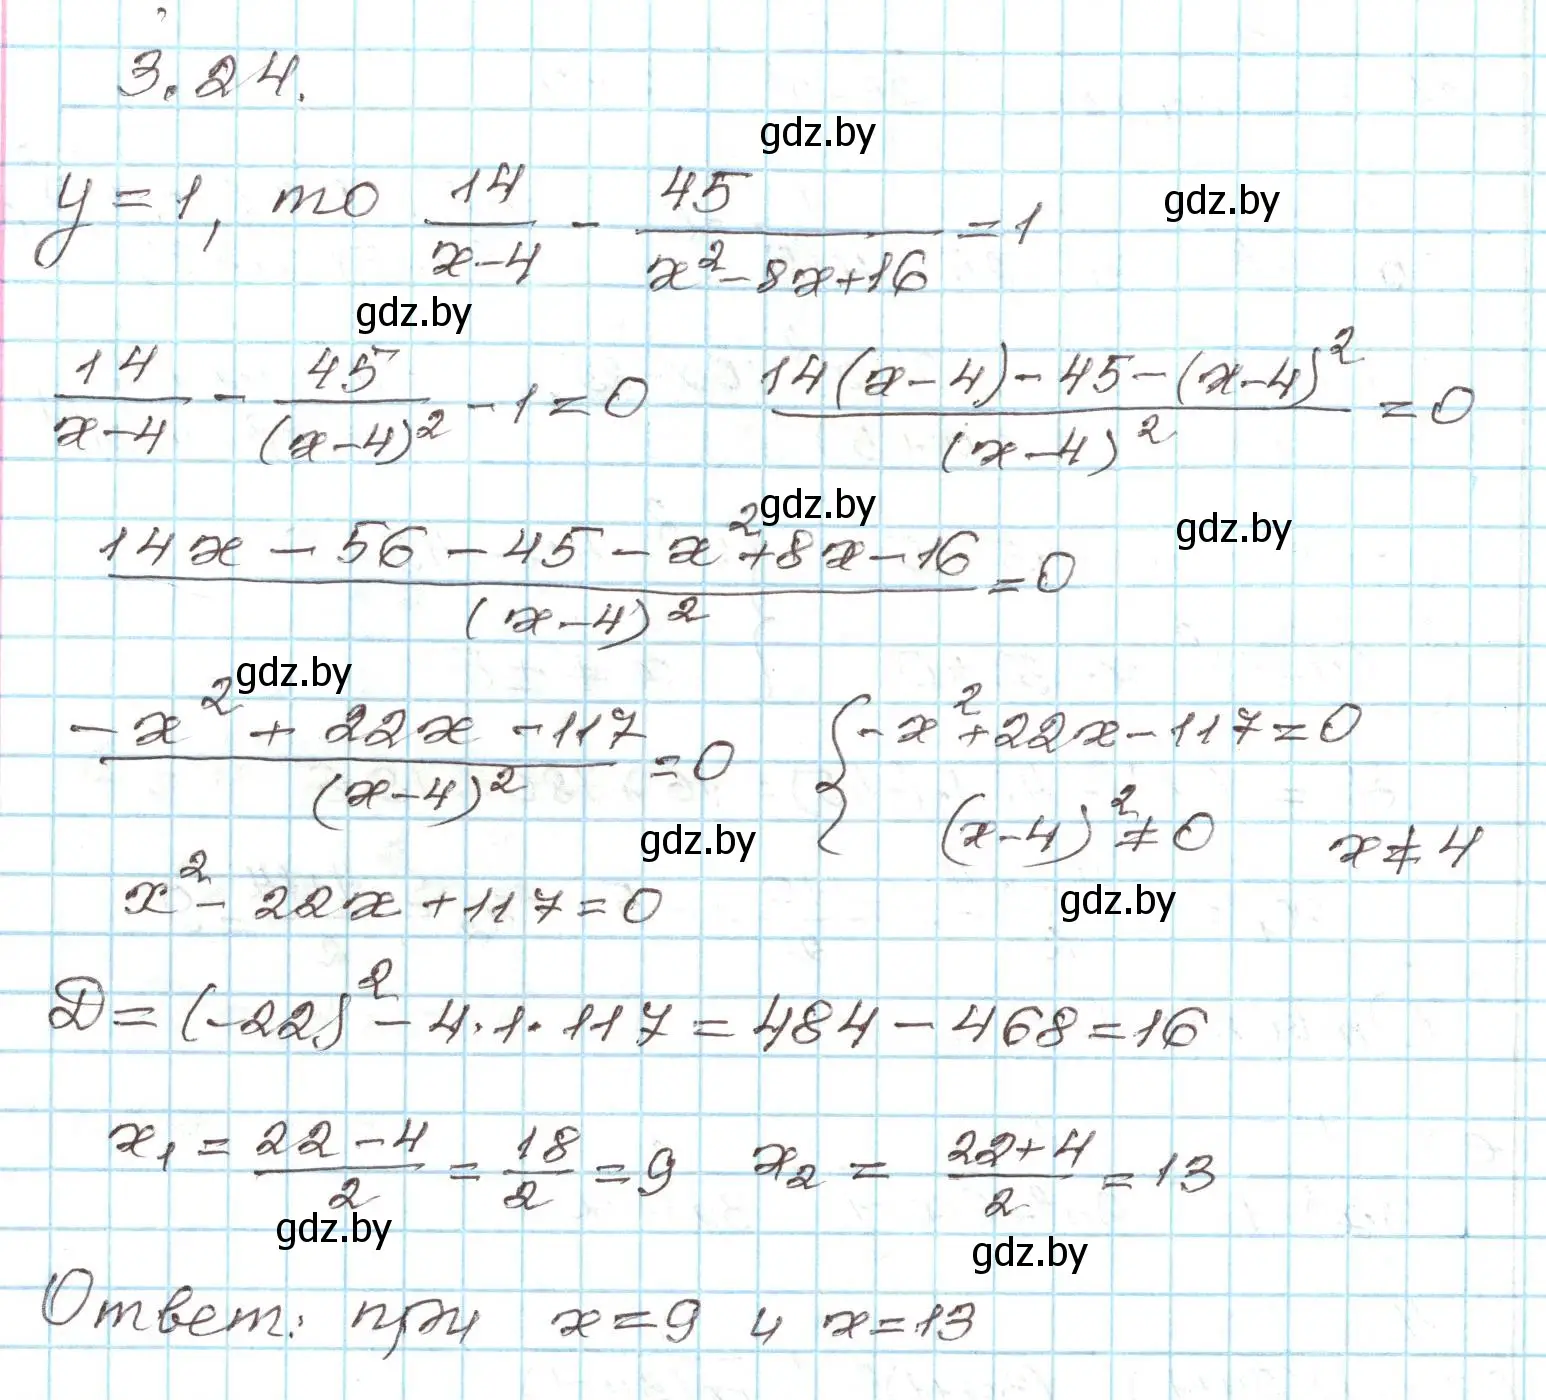 3.24.
gdz.by
y = 1, то 14/(x-4) - 45/(x²-8x+16) = 1 gdz.by
gdz.by
14/(x-4) - 45/(x-4)² - 1 = 0 (14(x-4)-45-(x-4)²)/(x-4)² = 0
gdz.by gdz.by
(14x - 56 - 45 - x² + 8x - 16)/(x-4)² = 0
gdz.by
(-x² + 22x - 117)/(x-4)² = 0 { -x² + 22x - 117 = 0
gdz.by (x-4)² ≠ 0 x ≠ 4
x² - 22x + 117 = 0 gdz.by
D = (-22)² - 4·1·117 = 484 - 468 = 16
x₁ = (22-4)/2 = 18/2 = 9 x₂ = (22+4)/2 = 13
gdz.by gdz.by
Ответ: при x = 9 и x = 13